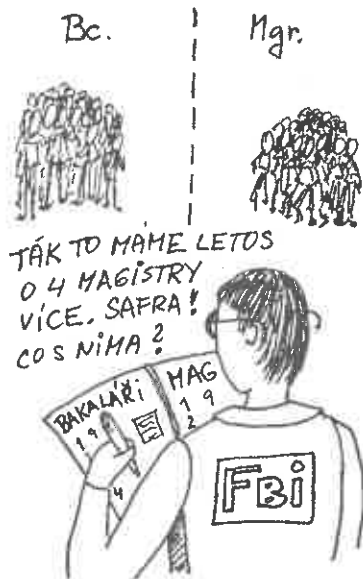 Bc.
Mgr.
TÁK TO MÁME LETOS
O 4 MAGISTRY
VÍCE. SAFRA!
CO S NIMA?
BAKALÁŘI
1 9
4
MAG
1 9
2
FBI